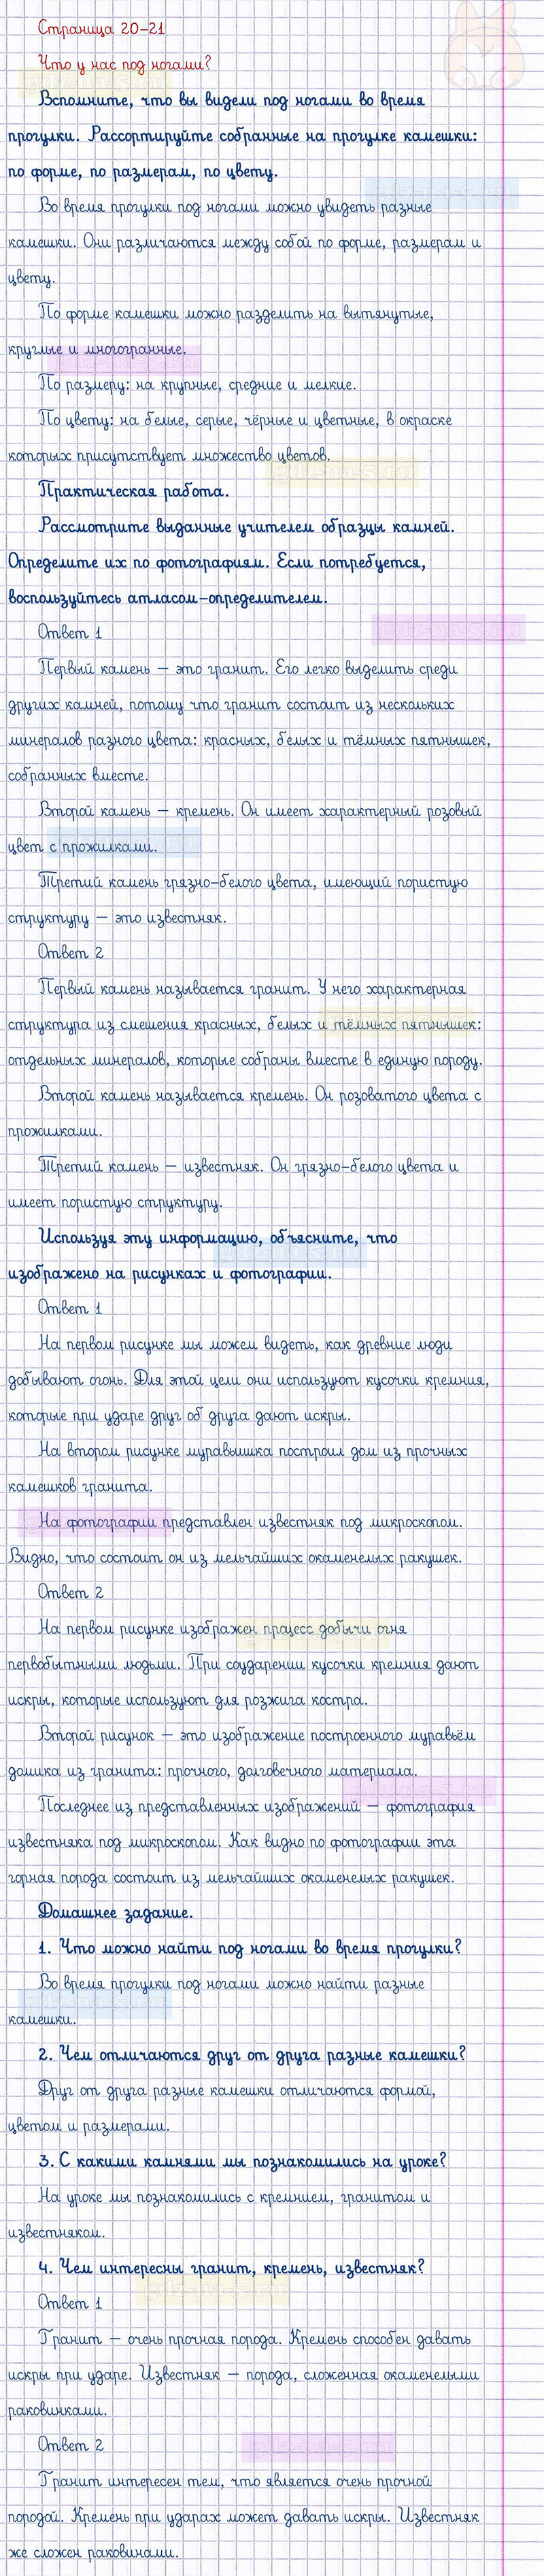 Страница 20-21
Что у нас под ногами?
Вспомните, что вы видели под ногами во время
прогулки. Рассортируйте собранные на прогулке камешки:
по форме, по размерам, по цвету.
Во время прогулки под ногами можно увидеть разные
камешки. Они различаются между собой по форме, размерам и
цвету.
По форме камешки можно разделить на вытянутые,
круглые и многогранные.
По размеру: на крупные, средние и мелкие.
По цвету: на белые, серые, чёрные и цветные, в окраске
которых присутствует множество цветов.
Практическая работа.
Рассмотрите выданные учителем образцы камней.
Определите их по фотографиям. Если потребуется,
воспользуйтесь атласом-определителем.
Ответ 1
Первый камень — это гранит. Его легко выделить среди
других камней, потому что гранит состоит из нескольких
минералов разного цвета: красных, белых и тёмных пятнышек,
собранных вместе.
Второй камень — кремень. Он имеет характерный розовый
цвет с прожилками.
Третий камень грязно-белого цвета, имеющий пористую
структуру — это известняк.
Ответ 2
Первый камень называется гранит. У него характерная
структура из смешения красных, белых и тёмных пятнышек:
отдельных минералов, которые собраны вместе в единую породу.
Второй камень называется кремень. Он розоватого цвета с
прожилками.
Третий камень — известняк. Он грязно-белого цвета и
имеет пористую структуру.
Используя эту информацию, объясните, что
изображено на рисунках и фотографии.
Ответ 1
На первом рисунке мы можем видеть, как древние люди
добывают огонь. Для этой цели они используют кусочки кремния,
которые при ударе друг об друга дают искры.
На втором рисунке муравьишка построил дом из прочных
камешков гранита.
На фотографии представлен известняк под микроскопом.
Видно, что состоит он из мельчайших окаменелых ракушек.
Ответ 2
На первом рисунке изображен процесс добычи огня
первобытными людьми. При соударении кусочки кремния дают
искры, которые используют для розжига костра.
Второй рисунок — это изображение построенного муравьём
домика из гранита: прочного, долговечного материала.
Последнее из представленных изображений — фотография
известняка под микроскопом. Как видно по фотографии эта
горная порода состоит из мельчайших окаменелых ракушек.
Домашнее задание.
1. Что можно найти под ногами во время прогулки?
Во время прогулки под ногами можно найти разные
камешки.
2. Чем отличаются друг от друга разные камешки?
Друг от друга разные камешки отличаются формой,
цветом и размерами.
3. С какими камнями мы познакомились на уроке?
На уроке мы познакомились с кремнием, гранитом и
известняком.
4. Чем интересны гранит, кремень, известняк?
Ответ 1
Гранит — очень прочная порода. Кремень способен давать
искры при ударе. Известняк — порода, сложенная окаменелыми
раковинками.
Ответ 2
Гранит интересен тем, что является очень прочной
породой. Кремень при ударах может давать искры. Известняк
же сложен раковинами.